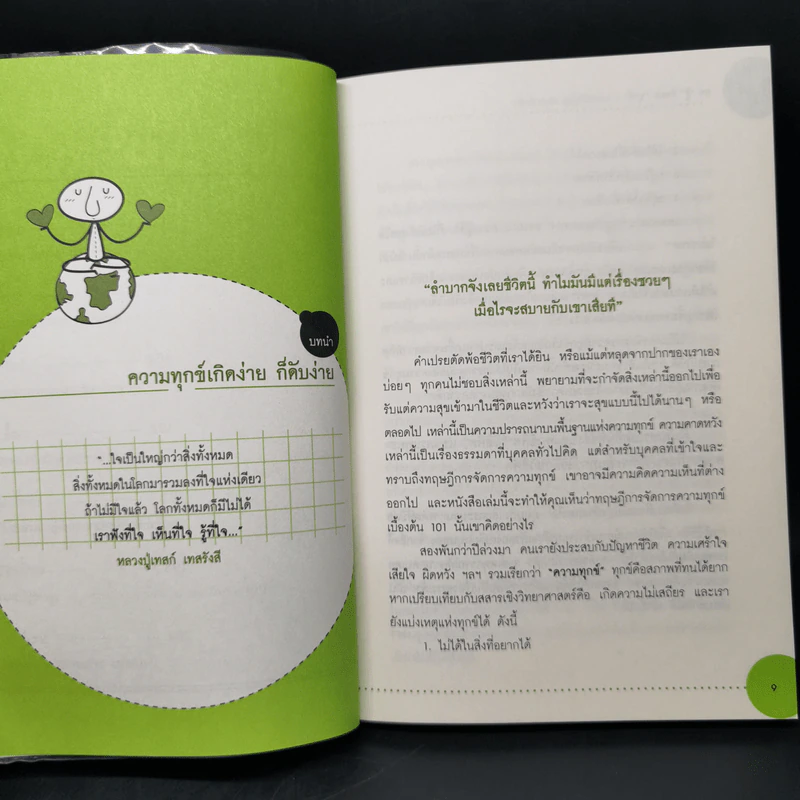 บทนำ
ความทุกข์เกิดง่าย ก็ดับง่าย
"...ใจเป็นใหญ่กว่าสิ่งทั้งหมด
สิ่งทั้งหมดในโลกมารวมลงที่ใจแห่งเดียว
ถ้าไม่มีใจแล้ว โลกทั้งหมดก็มีไม่ได้
เราฟังที่ใจ เห็นที่ใจ รู้ที่ใจ..."
หลวงปู่เทสก์ เทสรังสี
"ลำบากจังเลยชีวิตนี้ ทำไมมันมีแต่เรื่องซวยๆ
เมื่อไรจะสบายกับเขาเสียที"
คำเปรยตัดพ้อชีวิตที่เราได้ยิน หรือแม้แต่หลุดจากปากของเราเอง
บ่อยๆ ทุกคนไม่ชอบสิ่งเหล่านี้ พยายามที่จะกำจัดสิ่งเหล่านี้ออกไปเพื่อ
รับแต่ความสุขเข้ามาในชีวิตและหวังว่าเราจะสุขแบบนี้ไปได้นานๆ หรือ
ตลอดไป เหล่านี้เป็นความปรารถนาบนพื้นฐานแห่งความทุกข์ ความคาดหวัง
เหล่านี้เป็นเรื่องธรรมดาที่บุคคลทั่วไปคิด แต่สำหรับบุคคลที่เข้าใจและ
ทราบถึงทฤษฎีการจัดการความทุกข์ เขาอาจมีความคิดความเห็นที่ต่าง
ออกไป และหนังสือเล่มนี้จะทำให้คุณเห็นว่าทฤษฎีการจัดการความทุกข์
เบื้องต้น 101 นั้นเขาคิดอย่างไร
สองพันกว่าปีล่วงมา คนเรายังประสบกับปัญหาชีวิต ความเศร้าใจ
เสียใจ ผิดหวัง ฯลฯ รวมเรียกว่า "ความทุกข์" ทุกข์คือสภาพที่ทนได้ยาก
หากเปรียบเทียบกับสสารเชิงวิทยาศาสตร์คือ เกิดความไม่เสถียร และเรา
ยังแบ่งเหตุแห่งทุกข์ได้ ดังนี้
1. ไม่ได้ในสิ่งที่อยากได้
9